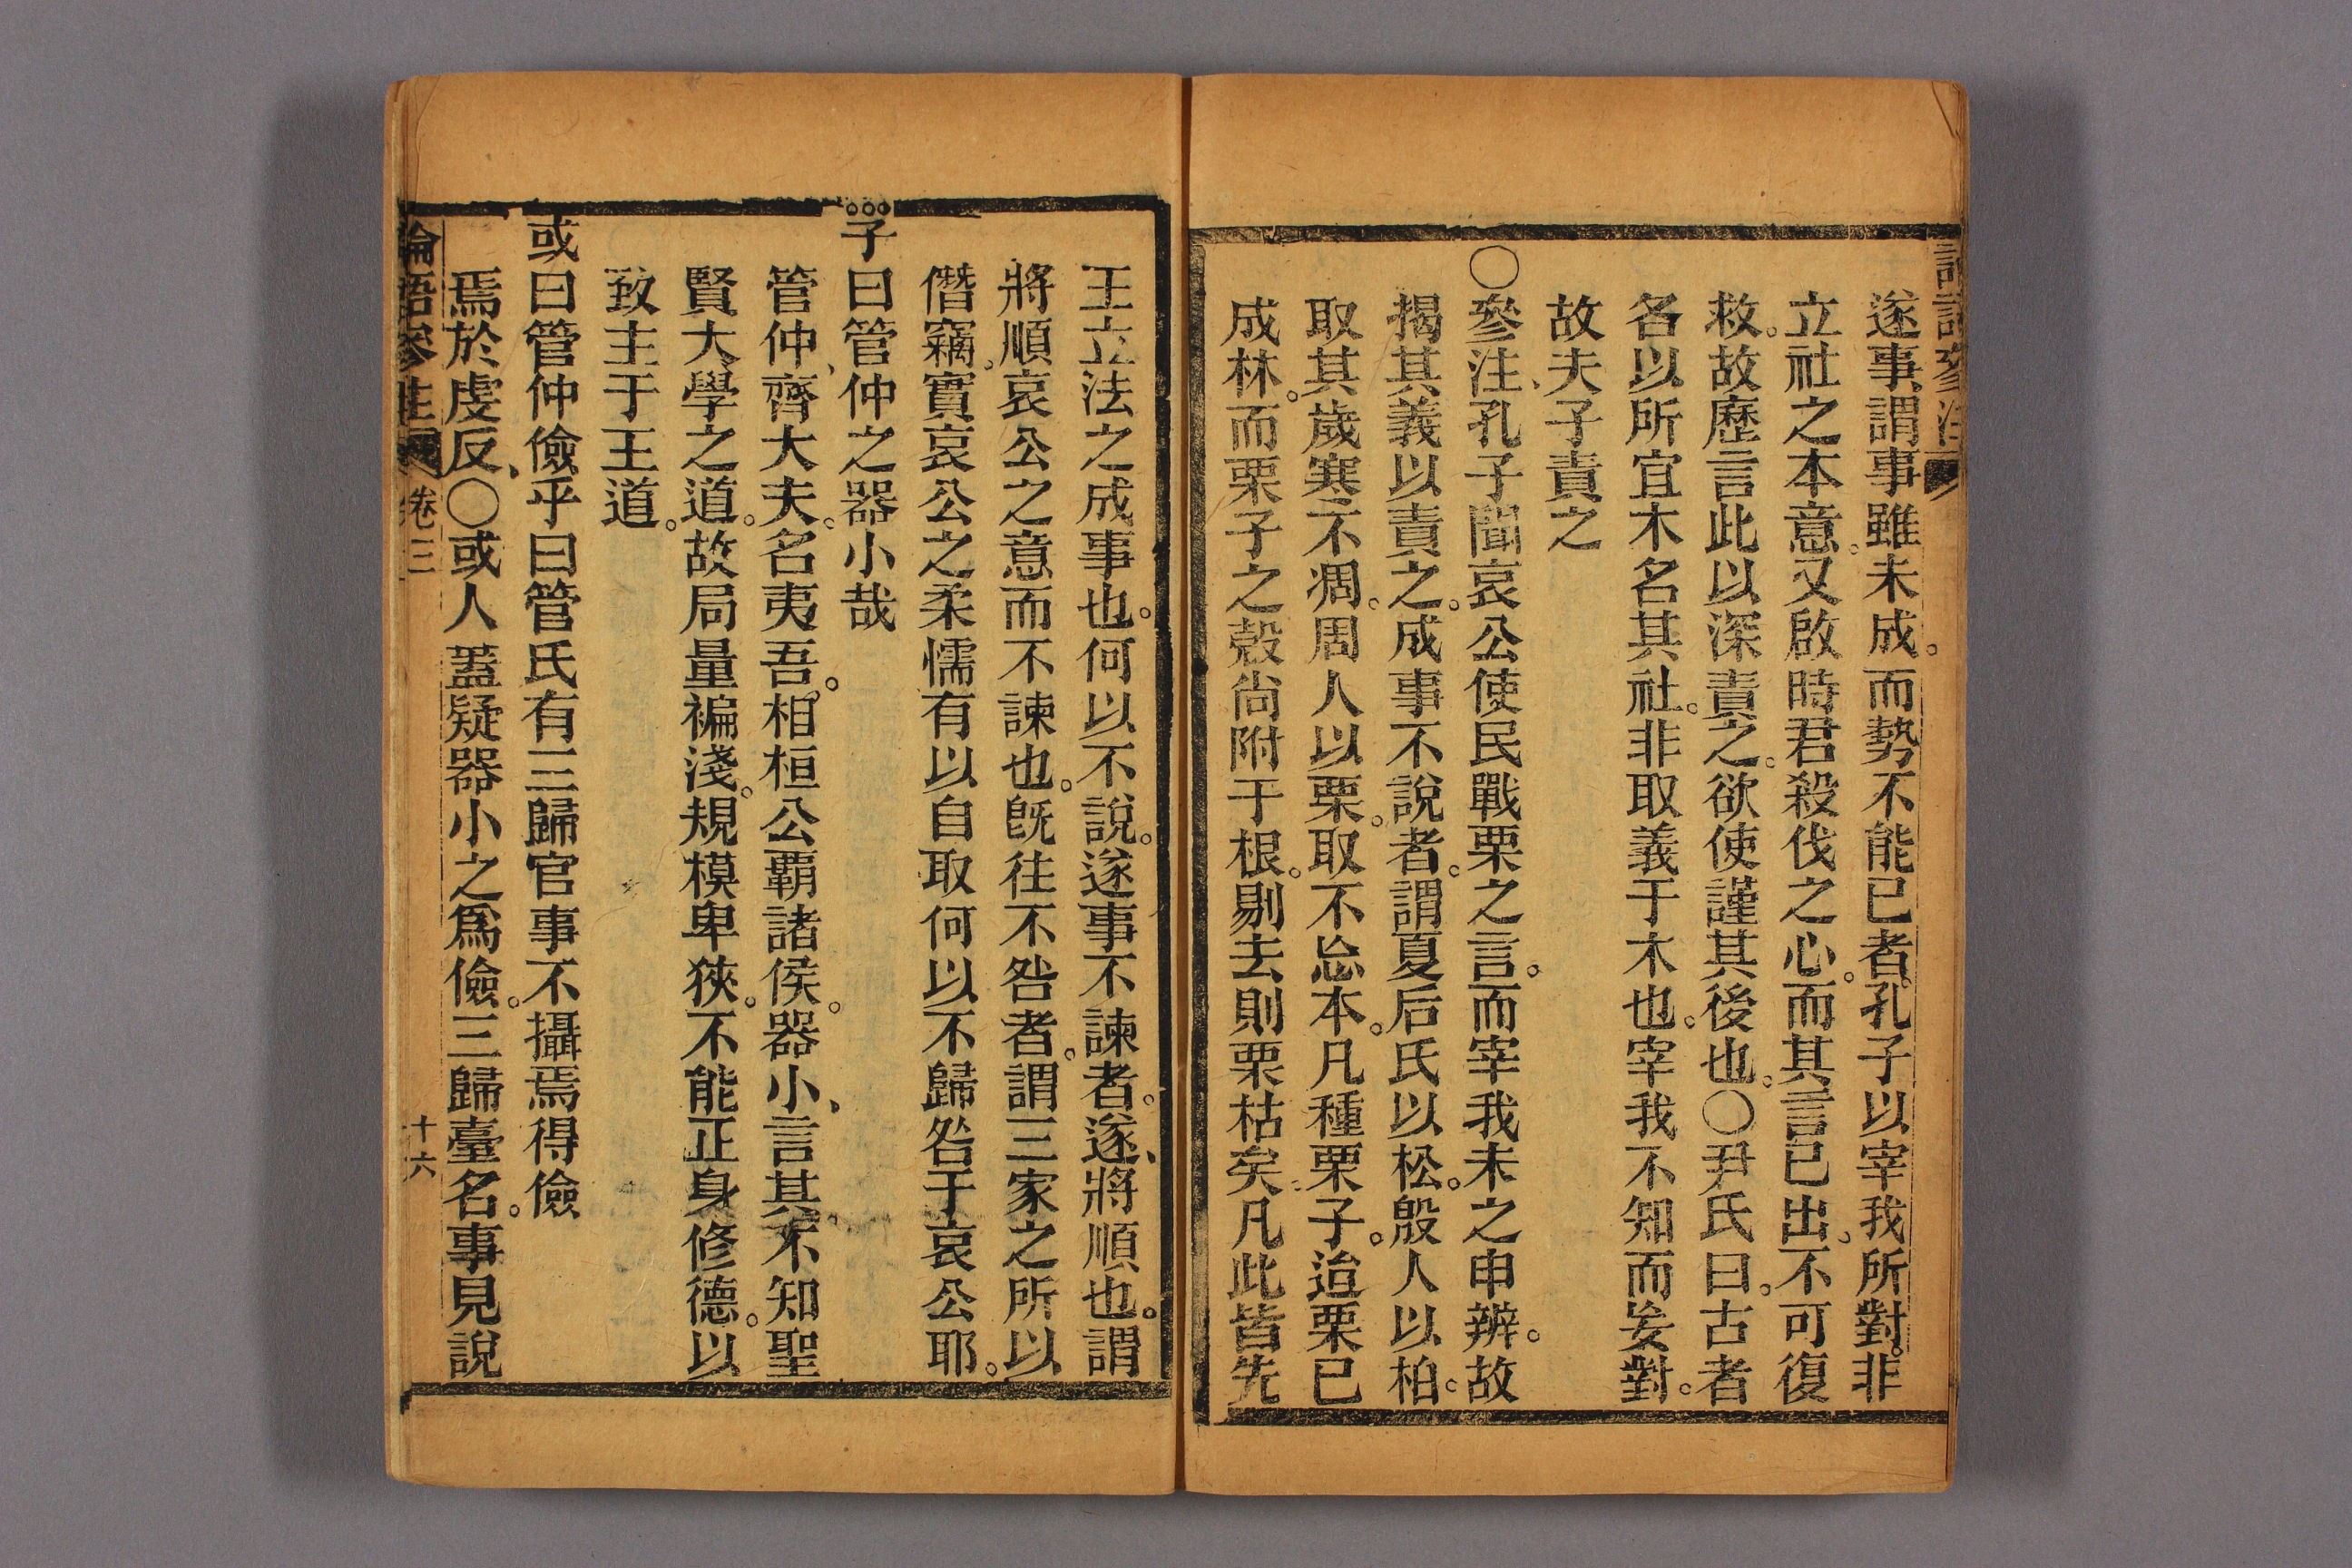 遂事、謂事雖未成。而勢不能已者。孔子以宰我所對。非
立社之本意。又啟時君殺伐之心。而其言已出、不可復
救。故歷言此以深責之。欲使謹其後也。〇尹氏曰。古者
名以所宜木名其社。非取義于木也。宰我不知而妄對。
故夫子責之
〇參注、孔子聞哀公使民戰栗之言。而宰我未之申辨。故
揭其義以責之。成事不說者。謂夏后氏以松。殷人以柏。
取其歲寒不凋。周人以栗。取不忘本。凡種栗子。迨栗已
成林。而栗子之殼尚附于根。剔去則栗枯矣。凡此皆先
王立法之成事也。何以不說。遂事不諫者。遂、將順也。謂
將順哀公之意而不諫也。旣往不咎者。謂三家之所以
僭竊。實哀公之柔懦有以自取。何以不歸咎于哀公耶。
子曰管仲之器小哉
管仲、齊大夫。名夷吾。相桓公霸諸侯。器小、言其不知聖
賢大學之道。故局量褊淺。規模卑狹。不能正身修德。以
致主于王道。
或曰管仲儉乎曰管氏有三歸官事不攝焉得儉
焉於虔反、〇或人蓋疑器小之爲儉。三歸臺名。事見說
論語參注 卷三 十六